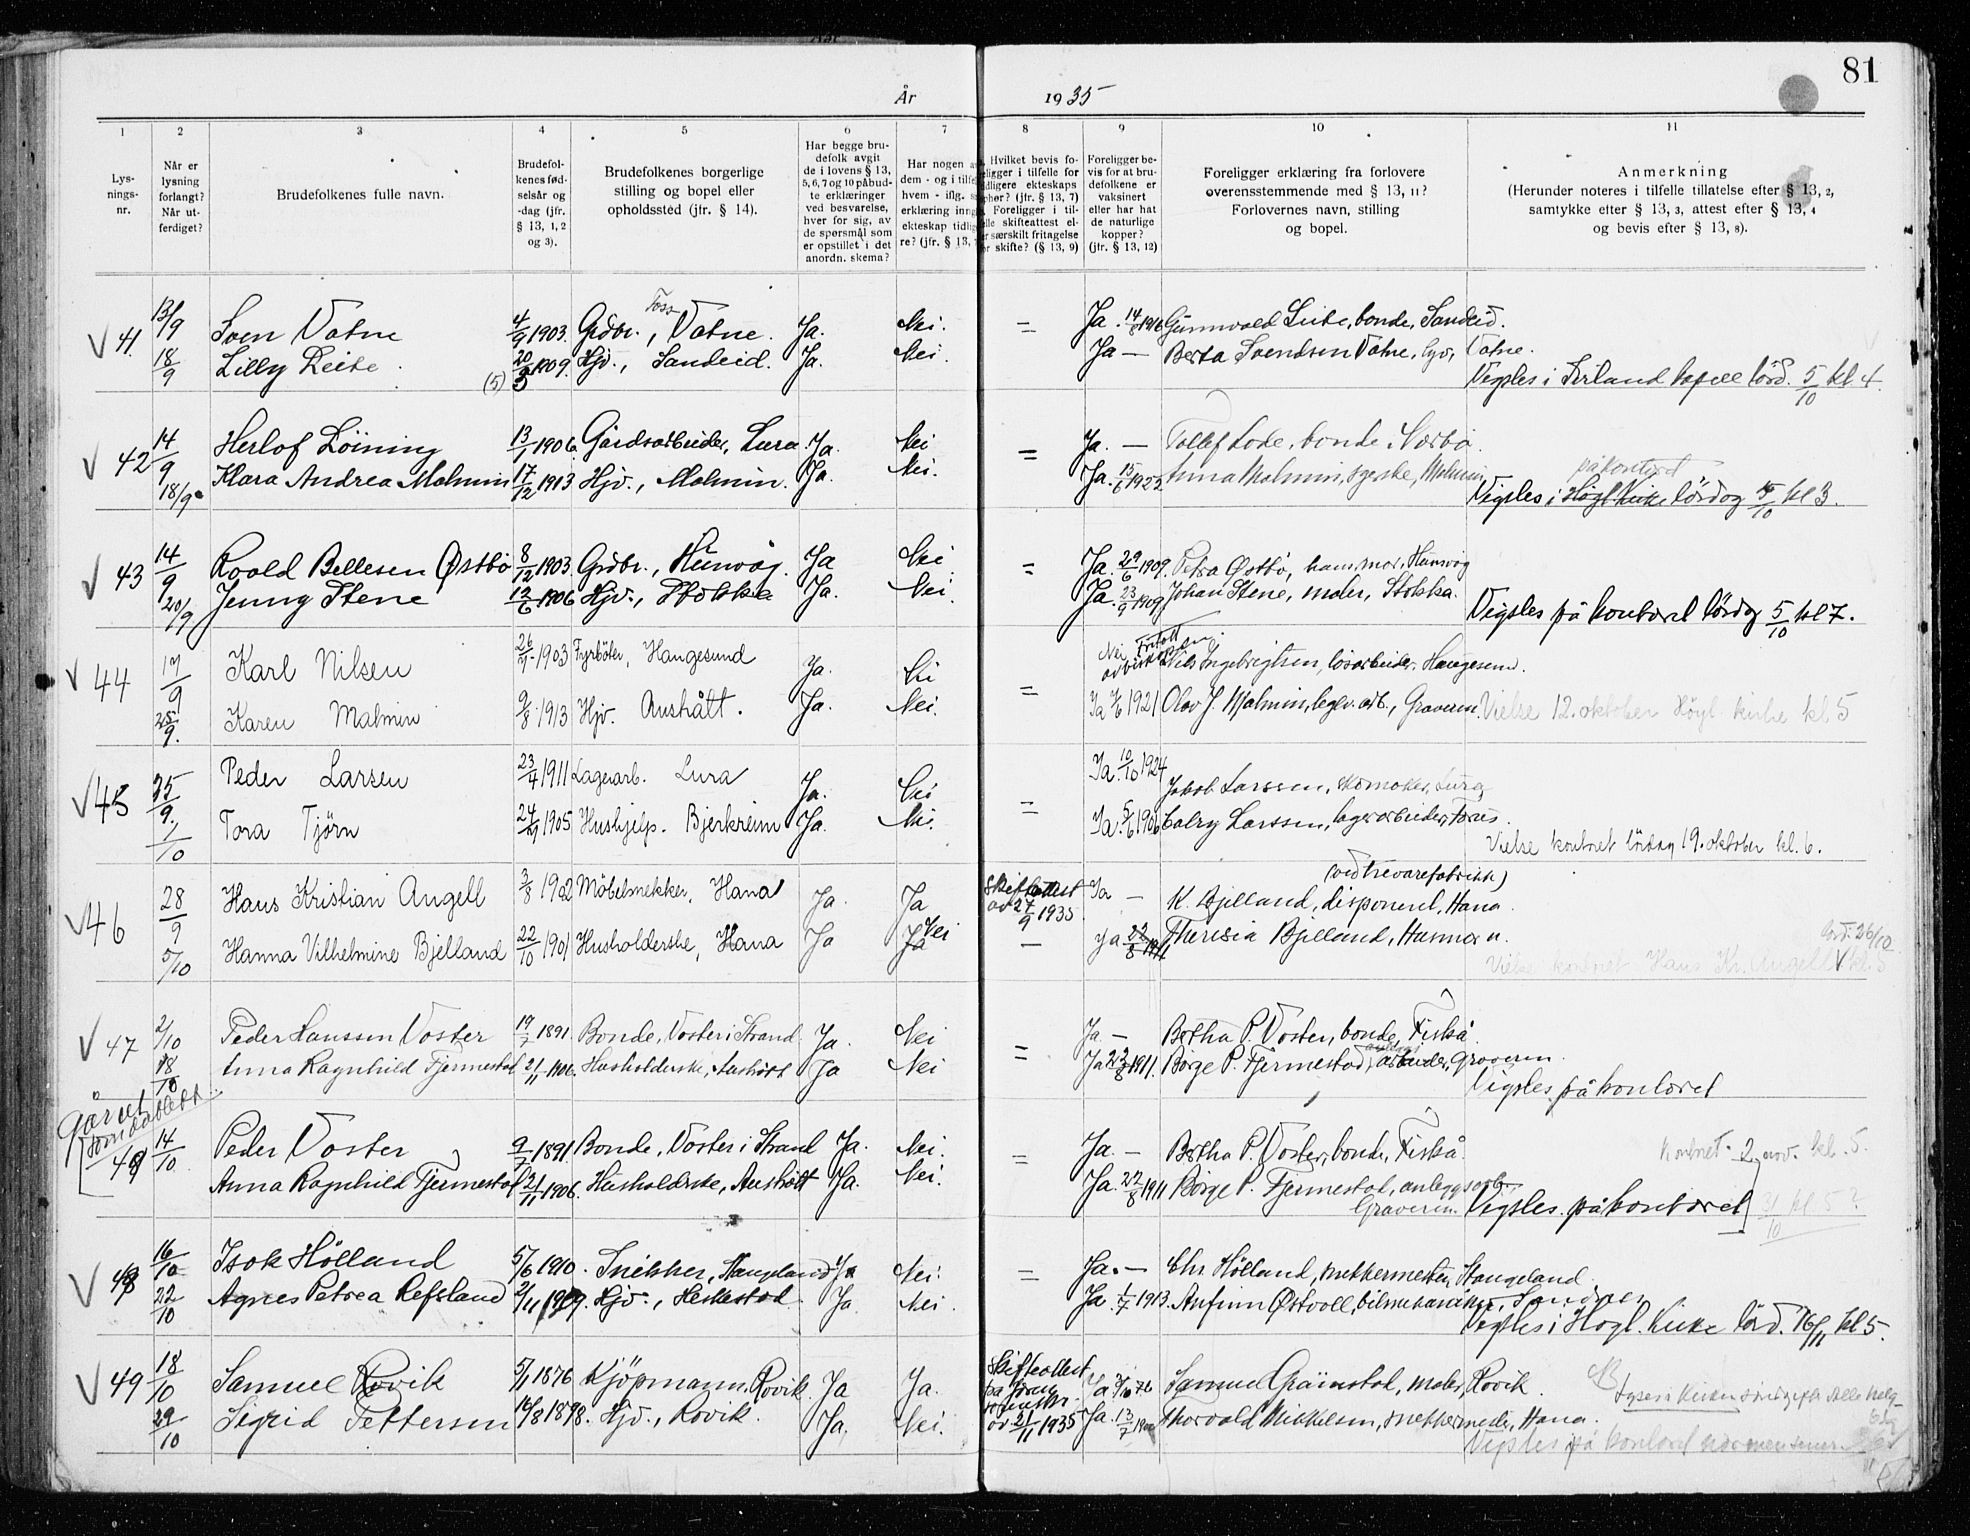 81
År 1935
1 2 3 4 5 6 7 8 9 10 11
Lys-
nings-
nr.
Når er
lysning
forlangt?
Når ut-
ferdiget?
Brudefolkenes fulle navn.
Brudefol-
kenes fød-
selsår og
-dag (jfr.
§ 13, 1, 2
og 3).
Brudefolkenes borgerlige
stilling og bopel eller
opholdssted (jfr. § 14).
Har begge bru-
defolk avgit
de i lovens § 13,
5, 6, 7 og 10 påbud-
te erklæringer
ved besvarelse,
hver for sig, av
de spørsmål som
er opstillet i det
anordn. skema?
Har nogen a
dem - og i tilfe
hvem - iflg. s
erklæring inng
ekteskap tidlig
re? (jfr. § 13,
Hvilket bevis fo-
religger i tilfelle for
tidligere ekteskaps
ophør? (jfr. § 13, 7)
Foreligger i til-
felle skifteattest el-
ler særskilt fritagelse
for skifte? (§ 13, 9)
Foreligger be-
vis for at bru-
defolkene er
vaksinert
eller har hat
de naturlige
kopper?
(jfr. § 13, 12)
Foreligger erklæring fra forlovere
overensstemmende med § 13, 11?
Forlovernes navn, stilling
og bopel.
Anmerkning
(Herunder noteres i tilfelle tillatelse efter § 13, 2,
samtykke efter § 13, 3, attest efter § 13, 4
og bevis efter § 13, 8).
√ 41 13/9 Sven Vatne 4/9 1903. Grdbr., Foss Vatne. Ja. Nei. = Ja. 14/8 1916 Gunnvald Leite, bonde, Sandeid.
18/9 Lilly Leite (5) 20/3 1909. Hjv., Sandeid. Ja. Nei. Ja — Berta Svendsen Vatne, Vatne.
Vigsles i kapell lörd. 5/10 kl 4.
√ 42 14/9 Herlof Löining 13/1 1906. Gårdsarbeider, Lura Ja. Nei = Ja. — Tollef Lode, bonde, Nærbø.
18/9 Klara Andrea Malmin 17/12 1913 Hjv., Malmin. Ja. Nei. Ja. 15/6 1922 Anna Malmin, Malmin
på kontoret
Vigsles i Høgl. kirke lördag 5/10 kl 3.
√ 43 14/9 Roald Bellesen Østbö 8/12 1903. Grdbr., Hunvåg. Ja Nei = Ja. 29/6 1909. Petra Østbö, hans mor, Hunvåg
20/9 Jenny Stene 12/6 1906 Hjv., Stokka Ja. Nei. Ja. 23/9 1909 Johan Stene, maler, Stokka.
Vigsles på kontoret lördag 5/10 kl 7.
√ 44 17/9 Karl Nilsen 26/7 1903 Fyrböter, Haugesund Ja. Nei = Nei Fritatt av biskopen. Nils Ingebrigtsen, lösarbeider, Haugesund.
25/9. Karen Malmin 9/8 1913 Hjv. Austrått. Ja. Nei. Ja 1921 Olav J. Malmin, Graveren. Vielse 12. oktober Høgl. kirke kl 5
√ 45 25/9. Peder Larsen 23/4 1911 Lagerarb. Lura Ja. Nei = Ja. 10/10 1924 Jakob Larssen, skomaker, Lura
1/10 Tora Tjörn 24/9 1905 Hushjelp. Bjerkreim Ja. Nei. Ja. 5/6 1906 Larssen, lagerarbeider, Forus.
Vielse kontoret lördag 19. oktober kl. 6.
√ 46 28/9 Hans Kristian Angell 3/8 1902 Möbelsnekker, Hana Ja. Ja Skifteattest av 27/9 1935 Ja — K. Bjelland, disponent, Hana. (ved trevarefabrikk)
5/10 Hanna Vilhelmine Bjelland 22/10 1901 Husholderske, Hana Ja Ja Nei — Ja 22/8 1911 Theresia Bjelland,
Vielse kontoret Hans Kr. Angell lörd. 26/10 kl. 5
√ 47 2/10 Peder Hanssen Voster 19/7 1891. Bonde, Voster i Strand. Ja. Nei = Ja — Bertha P. Voster, bonde, Fiskå.
18/10 Anna Ragnhild Fjermestad 21/11 1906. Husholderske, Austrått Ja Nei Ja 22/8 1911. Börge P. Fjermestad, anleggs arbeider, Graveren.
Vigsles på kontoret
48 14/10 Peder Voster 9/7 1891. Bonde, Voster i Strand Ja. Nei. = Ja. — Bertha P. Voster, bonde, Fiskå. Kontoret 2. nov. kl. 5.
Anna Ragnhild Fjermestad 21/11 1906. Husholderske, Austrått Ja. Nei. Ja. 22/8 1911 Börge P. Fjermestad, anleggsarb., Graveren
Vigsles på kontoret 31/10 kl 5?
√ 48 16/10 Isak Hölland 5/6 1910. Snikker, Stangeland Ja Nei. = Ja. — Chr Hölland, snekkermester, Stangeland.
22/10 Agnes Petrea Refsland 2/11 1909. Hjv., Heskestad. Ja. Nei. Ja 1/7 1913. Anfinn Østvoll, Sandnes
Vigsles i Høgl. kirke lörd. 16/11 kl 5.
√ 49 18/10 Samuel Rovik 5/1 1876 Kjöpmann, Rovik. Ja Ja. Skifteattest 21/11 1935 Ja Samuel Gramstad, maler, Rovik.
29/10 Sigrid Pettersen 14/8 1898. Hjv., Rovik. Ja. Nei. Ja. 13/7 Thorvald Mikkelsen, Hana.
Vigsles på kontoret